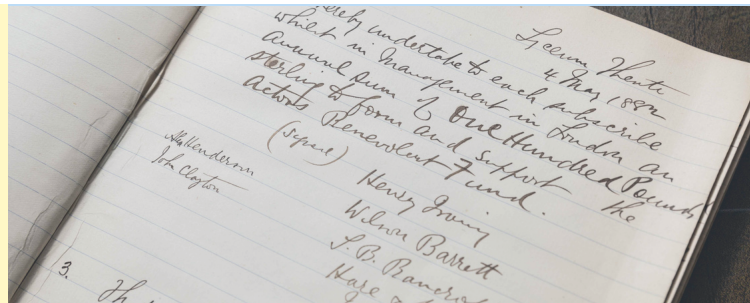 Lyceum Theatre
4 May 1882
hereby undertake to each subscribe
whilst in Management in London an
annual sum of One Hundred Pounds
sterling to form and support the
Actors Benevolent Fund.
(signed)
Henry Irving
Wilson Barrett
S. B. Bancroft
Hare
Alex Henderson
John Clayton
3.